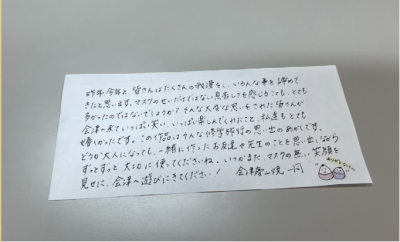 昨年、今年と、皆さんはたくさんの我慢をし、いろんな事を諦めて
きたと思います。マスクのせいだけではない息苦しさを感じることも、とても
多かったのではないでしょうか?そんな大変な思いをされた皆さんが
会津へ来ていっぱい笑い、いっぱい楽しんでくれたこと、私達もとても
嬉しかったです。この作品はそんな修学旅行の思い出のあかしです。
どうか大人になっても、一緒に作ったお友達や先生のことを思い出しながら
ずっとずっと大切に使ってくださいね。いつかまた、マスクの無い笑顔を
見せに、会津へ遊びにきてください!
会津慶山焼一同
ありがとう